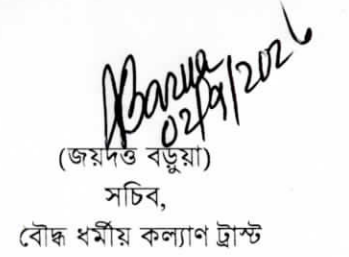 JBarua
02/9/2026
(জয়দত্ত বড়ুয়া)
সচিব,
বৌদ্ধ ধর্মীয় কল্যাণ ট্রাস্ট